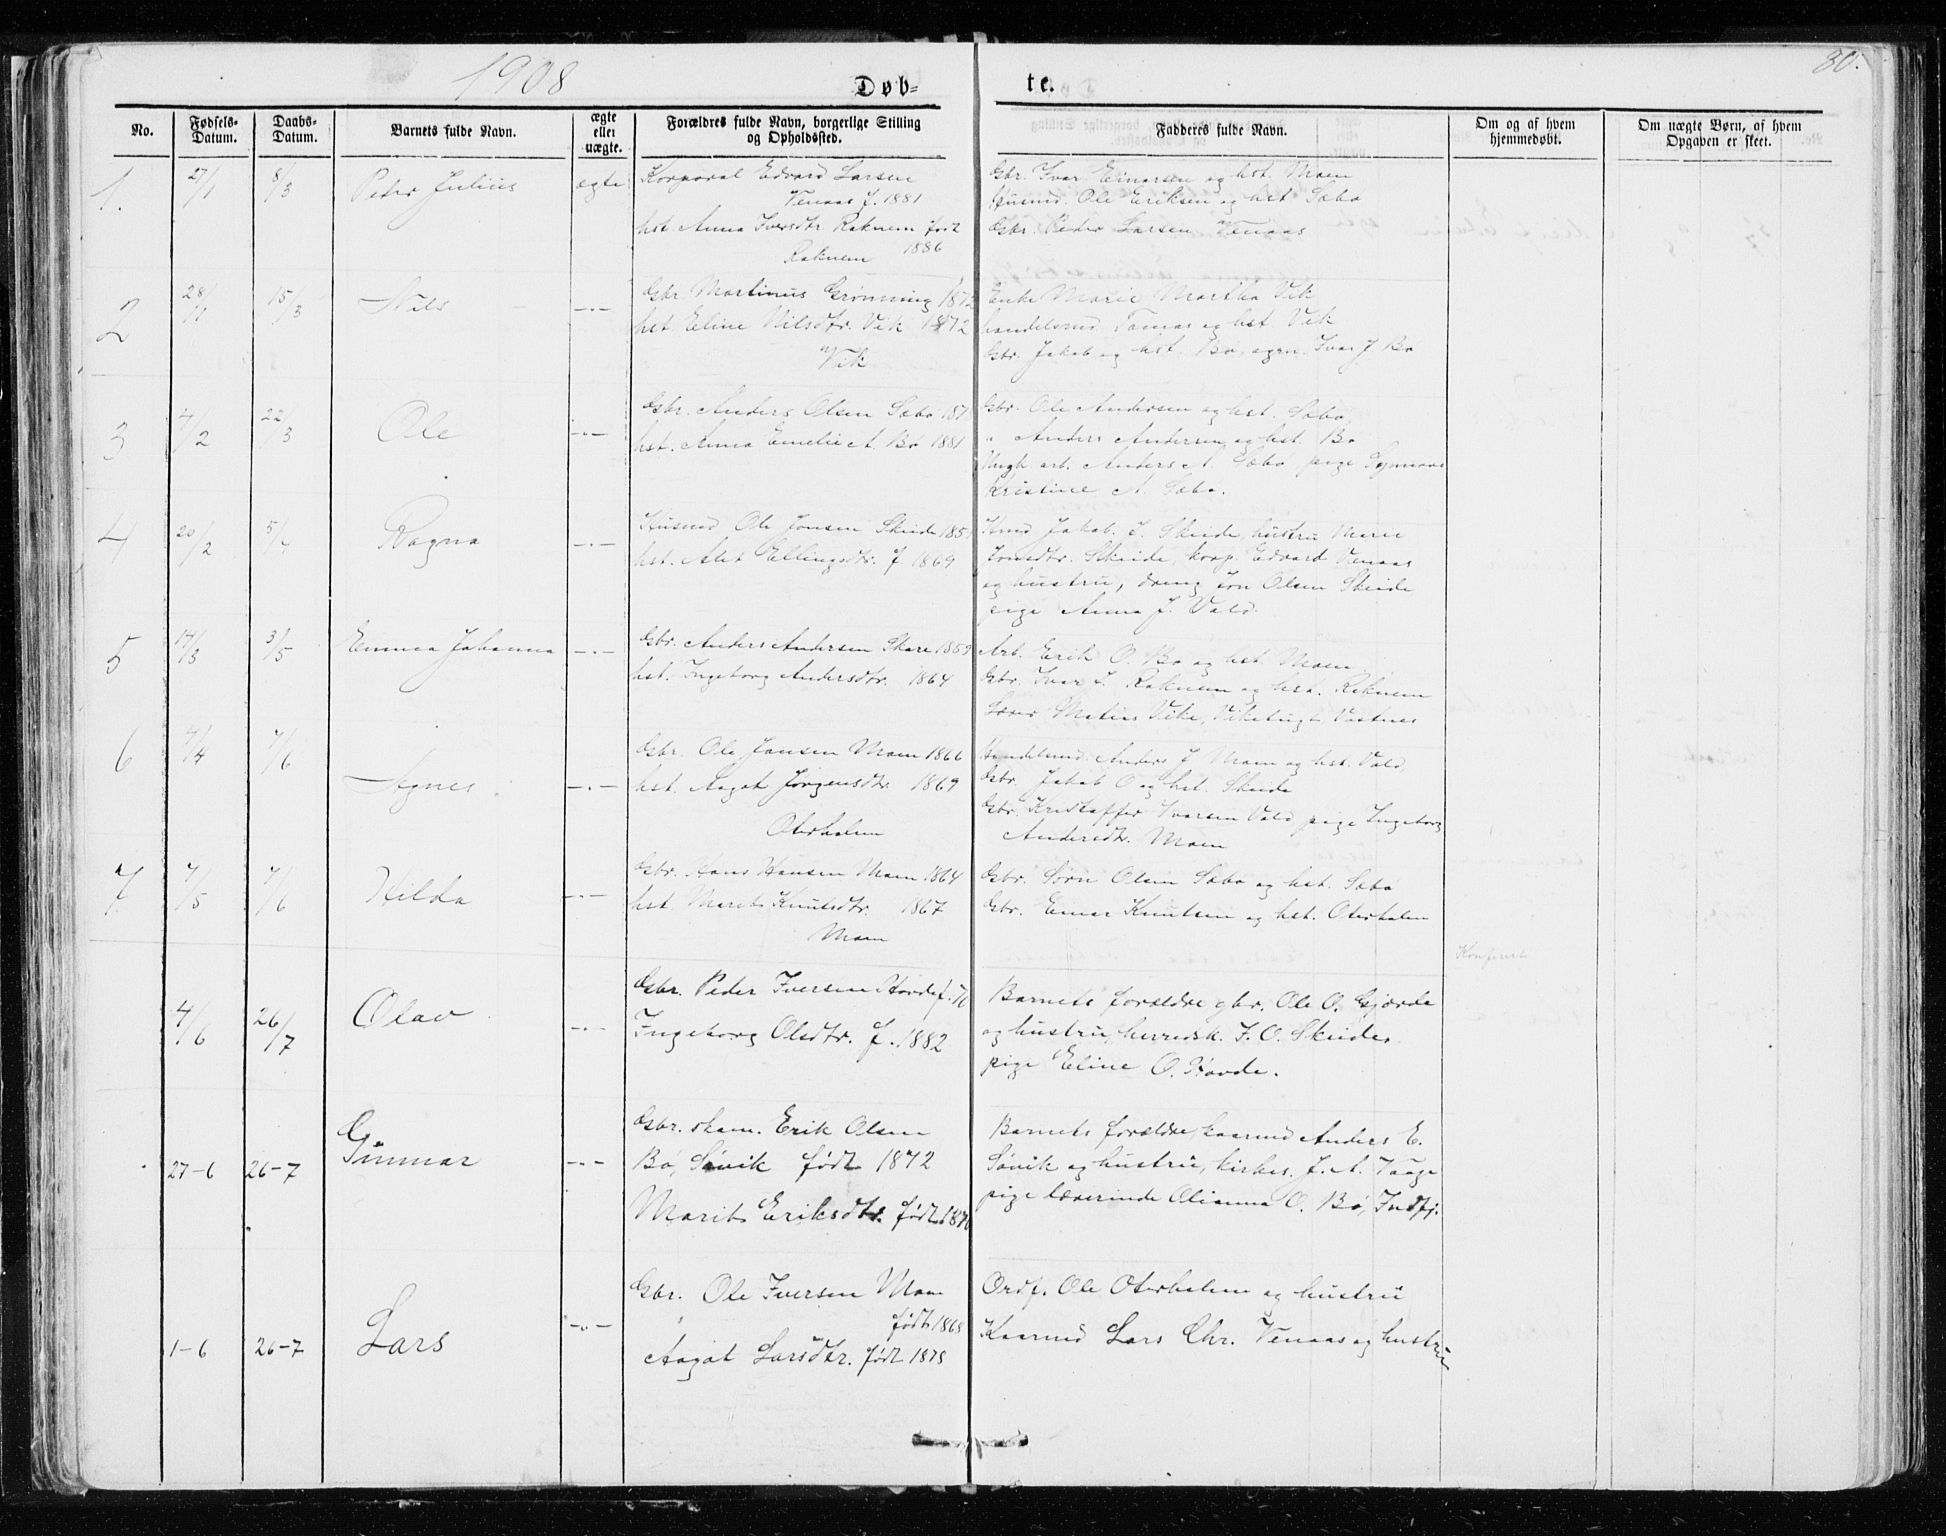 1908
80.
Døb-
te.
No.
Fødsels-Datum.
Daabs-Datum.
Barnets fulde Navn.
ægte eller uægte.
Forældres fulde Navn, borgerlige Stilling og Opholdssted.
Fadderes fulde Navn.
Om og af hvem hjemmedøbt.
Om uægte Børn, af hvem Opgaven er skeet.
1. 27/1 8/3 Peter Julius ægte Korporal Edvard Larsen
Venaas f. 1881
hst. Anna Iversdtr. Raknem født
1886
Raknem
Gbr. Ivar Einarsen og hst. Moen
Husmd. Ole Eriksen og hst Sæbø
Gbr. Peder Larsen Venaas
2 28/1 15/3 Nils -"- Gbr. Martinus Grønning 1872
hst. Eline Nilsdtr. Vik 1872
Vik
Enke Marie Martha Vik
handelsmd. Tomas og hst. Vik
Gbr. Jakob og hst. Bø, ugm. Ivar J. Bø
3 4/2 22/3 Ole -"- Gbr. Anders Olsen Sæbø 187
hst. Anna Emelie A. Bø 1881
Gbr. Ole Andersen og hst. Sæbø
" Anders Andersen og hst. Bø
Ungk. arb. Anders A. Sæbø pige
Kristine A. Sæbø.
4 20/2 5/4 Ragna -"- Husmd Ole Jonsen Skeide 185
hst. Alet Ellingsdtr. f 1869
Jakob. J. Skeide, hustru Marie
Jonsdtr. Skeide, korp. Edvard Venaas
og hustru, dreng Jon Olsen Skeide
pige Anna J. Vold.
5 17/3 3/5 Emma Johanna -"- Gbr. Anders Andersen Skare 1859
hst. Ingeborg Andersdtr. 1864
Arb. Erik O. Bø og hst. Moen
Gbr. Ivar J. Raknem og hst. Raknem
Lærer Matias Vike, Vikebugt, Vestnes
6 4/4 7/6 Agnes. -"- Gbr. Ole Jonsen Moen 1866
hst. Aagot Jørgensdtr 1869
Oterhalm
Handelsmd. Anders J Moen og hst. Vold,
Gbr. Jakob O og hst. Skeide
Gbr. Kristoffer Ivarsen Vold pige Ingeborg
Andersdtr. Moen
7. 4/5 7/6 Hilda -"- Gbr. Hans Hansen Moen 1864
hst. Marit Knutsdtr. 1867
Moen
Gbr. Sørn Olsen Sæbø og hst. Sæbø
Gbr. Einar Knutsen og hst. Oterhalm
4/6 26/7 Olav -"- Gbr. Peder Iversen Hovde f. 76
Ingeborg Olsdtr. f. 1882
Barnets forældre gbr. Ole O. Gjærde
og hustru, herredsk. J. O. Skeide
pige Eline O. Hovde.
27-6 26-7 Gunnar -"- Gbr. skom. Erik Olsen
Bø, Søvik født 1872
Marit Eriksdtr. født 1876
Barnets forældre, kaarmd Anders E.
Søvik og hustru, kirkes. J. A. Vaage
pige lærerinde Olianna O. Bø, Indfj.
1-6 26-7 Lars -"- Gbr. Ole Iversen Moen
født 1868
Aagot Larsdtr. født 1878
Ordf. Ole Oterhalm og hustru
Kaarmd Lars Chr. Venaas og hustru